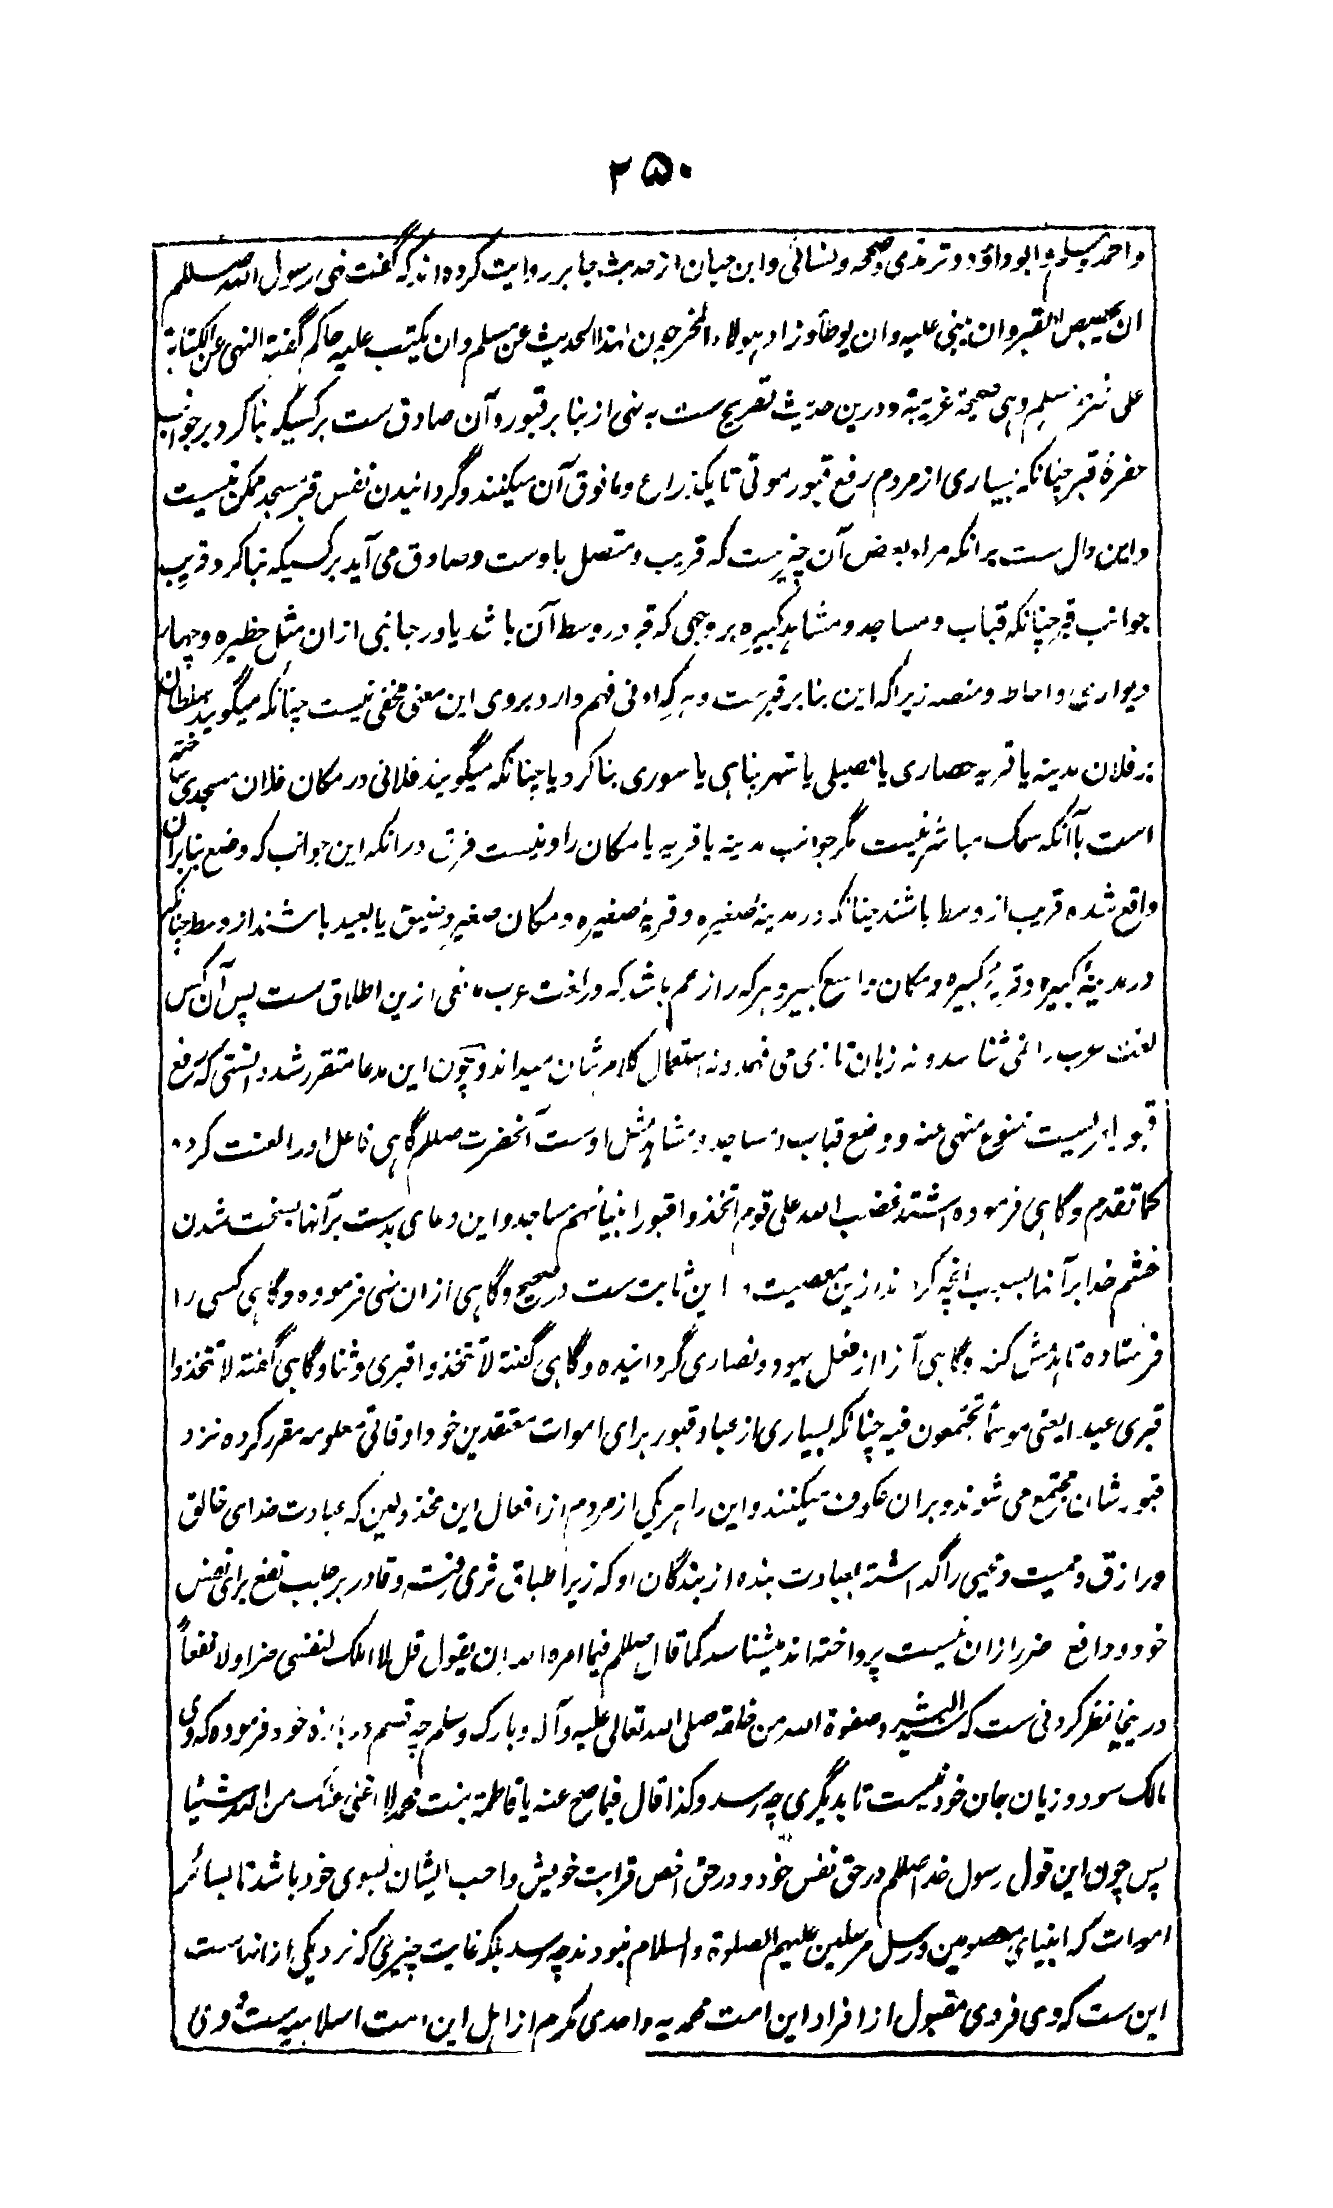 ۲۵۰
واحمد ومسلم وابوداؤد وترمذی وصححه ونسائی وابن حبان از حدیث جابر روایت کرده اند که گفت نهی رسول الله صللم
ان یجصص القبر وان یبنی علیه وان یوطأ وزاد هولاء المخرجون لهذا الحدیث عن مسلم وان یکتب علیه حاکم گفته النهی عن الکتابة
علی شرط مسلم وهی صحیحة غریبة ودرین حدیث تصریح ست به نهی از بنا بر قبور وآن صادق ست بر کسیکه بنا کرد بر جوانب
حفرهٔ قبر چنانکه بسیاری از مردم رفع قبور موتی تا یکذراع ومافوق آن میکنند وگردانیدن نفس قبر مسجد ممکن نیست
واین دال ست برانکه مراد بعض آن چیزست که قریب ومتصل باوست وصادق می آید بر کسیکه بنا کرد قریب
جوانب قبر چنانکه قباب ومساجد ومشاهد کبیره بر وجهی که قبر در وسط آن باشد یا در جانبی ازان مثل حظیره وچهار
دیواری واحاطه ومنصه زیراکه این بنا بر قبرست وهرکه ادنی فهم دارد بروی این معنی مخفی نیست چنانکه میگویند سلطان
بر فلان مدینه یا قریه حصاری یا فصیلی یا شهر پناهی یا سوری بنا کرد یا چنانکه میگویند فلانی در مکان فلان مسجدی ساخته
است با آنکه سمک مباشر نیست مگر جوانب مدینه یا قریه یا مکان را ونیست فرق درانکه این جوانب که وضع بنا بران
واقع شده قریب از وسط باشند چنانکه در مدینهٔ صغیره وقریهٔ صغیره ومکان صغیر وضیق یا بعید باشند از وسط چنانکه
در مدینهٔ کبیره وقریهٔ کبیره ومکان واسع کبیر وهرکه را زعم باشد که در لغت عرب منعی ازین اطلاق ست پس آن کس
لغت عرب را نمی شناسد ونه زبان تازی می فهمد ونه استعمال کلام شان میداند وچون این مدعا متقرر شد دانستی که رفع
قبور امریست ممنوع منهی عنه ووضع قباب ومساجد ومشاهد مثل اوست آنحضرت صللم گاهی فاعل اورا لعنت کرده
کما تقدم وگاهی فرموده اشتد غضب الله علی قوم اتخذوا قبور انبیائهم مساجد واین دعای بدست برآنها بسخت شدن
خشم خدا برآنها بسبب انچه کردند ازین معصیت واین ثابت ست در صحیح وگاهی ازان نهی فرموده وگاهی کسی را
فرستاده تا هدمش کند وگاهی آنرا از فعل یهود ونصاری گردانیده وگاهی گفته لا تتخذوا قبری وثنا وگاهی گفته لا تتخذوا
قبری عیدا یعنی موسما تجتمعون فیه چنانکه بسیاری از عباد قبور برای اموات معتقدین خود اوقاتی معلومه مقرر کرده نزد
قبور شان مجتمع می شوند وبران عکوف میکنند واین را هر یکی از مردم از افعال این مخذولین که عبادت خدای خالق
ورازق وممیت ومحیی را گذاشته بعبادت بنده از بندگان او که زیر اطباق ثری رفته وقادر بر جلب نفع برای نفس
خود ودافع ضرر ازان نیست پرداخته اند میشناسد کما قال صللم فیما امره الله ان یقول قل لا املک لنفسی ضرا ولا نفعاً
درینجا نظر کردنی ست که سید البشر وصفوة الله من خلقه صلی الله تعالی علیه وآله وبارک وسلم چه قسم در بارهٔ خود فرموده که وی
مالک سود وزیان جان خود نیست تا بدیگری چه رسد وکذا قال فیما صح عنه یا فاطمة بنت محمد لا اغنی عنک من الله شیئا
پس چون این قول رسول خدا صللم در حق نفس خود ودر حق اخص قرابت خویش واحب ایشان بسوی خود باشد تا بسائر
اموات که انبیای معصومین ورسل مرسلین علیهم الصلوة والسلام نبودند چه رسد بلکه غایت چیزی که نزد یکی ازانهاست
این ست که وی فردی مقبول از افراد این امت محمدیه وواحدی مکرم از اهل این ملت اسلامیه ست وی